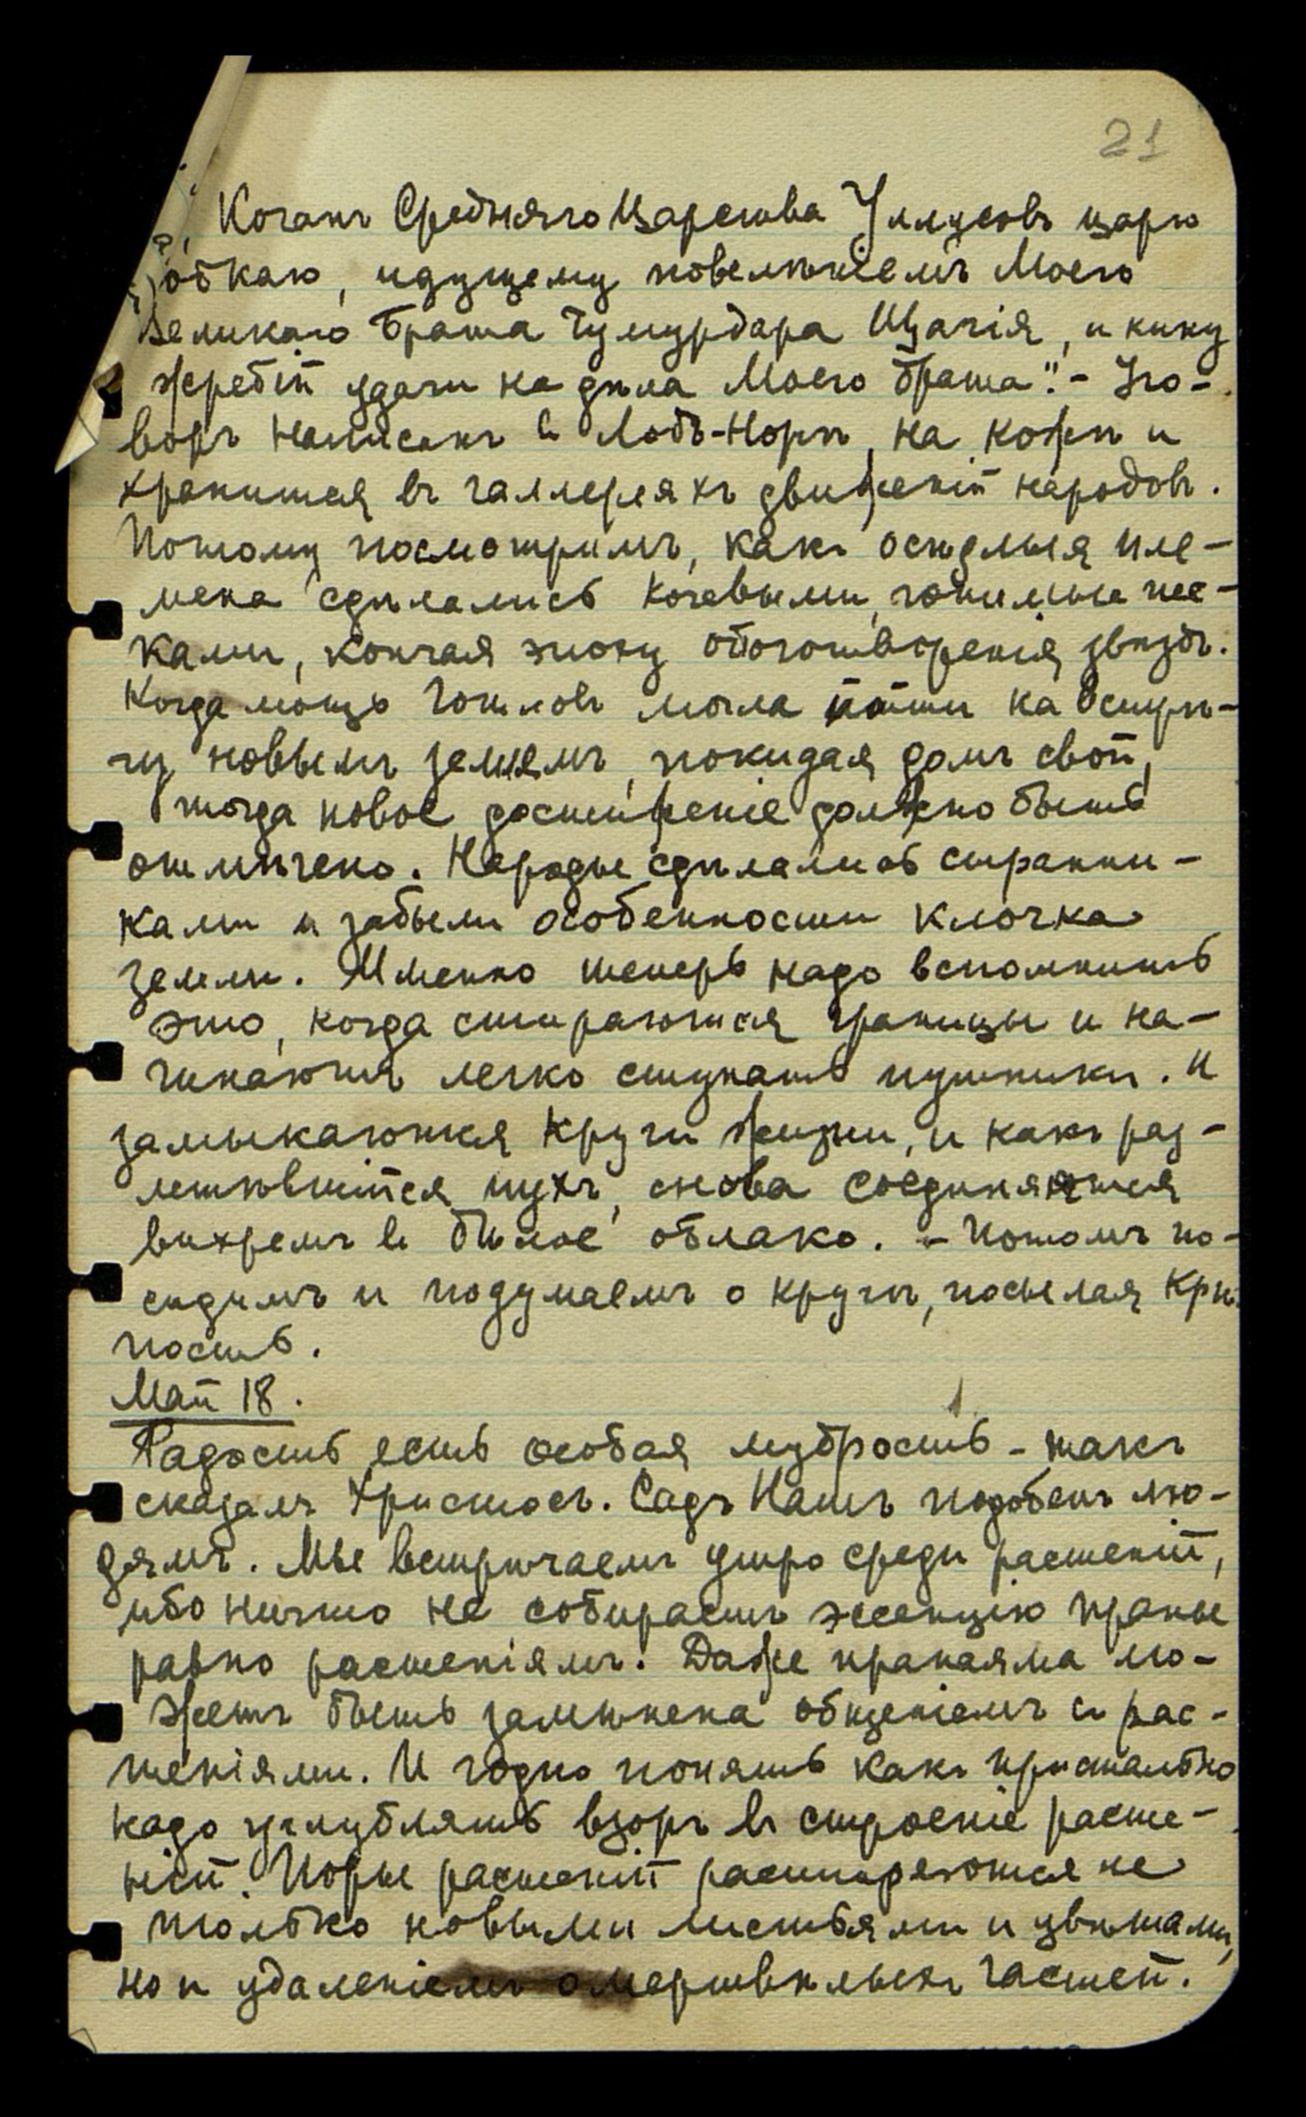 21
Коганъ Средняго Царства Уллусовъ царю
откаю, идущему повелѣніемъ Моего
Великаго Брата Чумурдара Щагія, и кину
жребій удачи на дѣла Моего брата". - Уго-
воръ написанъ въ Лобъ-Норѣ, на кожѣ и
хранится въ галлереяхъ движеній народовъ.
Потому посмотримъ, какъ осѣдлыя пле-
мена сдѣлались кочевыми, гонимые пес-
ками, кончая эпоху обоготворенія звѣздъ.
Когда мощь Готловъ могла пойти на встрѣ-
чу новымъ землямъ, покидая домъ свой,
тогда новое достиженіе должно быть
отмѣчено. Народы сдѣлались странни-
ками и забыли особенности клочка
земли. Именно теперь надо вспомнить
это, когда стираются границы и на-
чинаютъ легко ступать путники. И
замыкаются круги жизни, и какъ раз-
летѣвшійся пухъ, снова соединяются
вихремъ въ бѣлое облако. - Потомъ по-
сидимъ и подумаемъ о кругѣ, посылая крѣ-
пость.
Май 18.
Радость есть особая мудрость - такъ
сказалъ Христосъ. Садъ Нашъ подобенъ лю-
дямъ. Мы встрѣчаемъ утро среди растеній,
ибо ничто не собираетъ эссенцію праны
равно растеніямъ. Даже пранаяма мо-
жетъ быть замѣнена общеніемъ съ рас-
теніями. И годно понять какъ пристально
надо углублять взоръ въ строеніе расте-
ній. Поры растеній расширяются не
только новыми листьями и цвѣтами,
но и удаленіемъ омертвѣлыхъ частей.